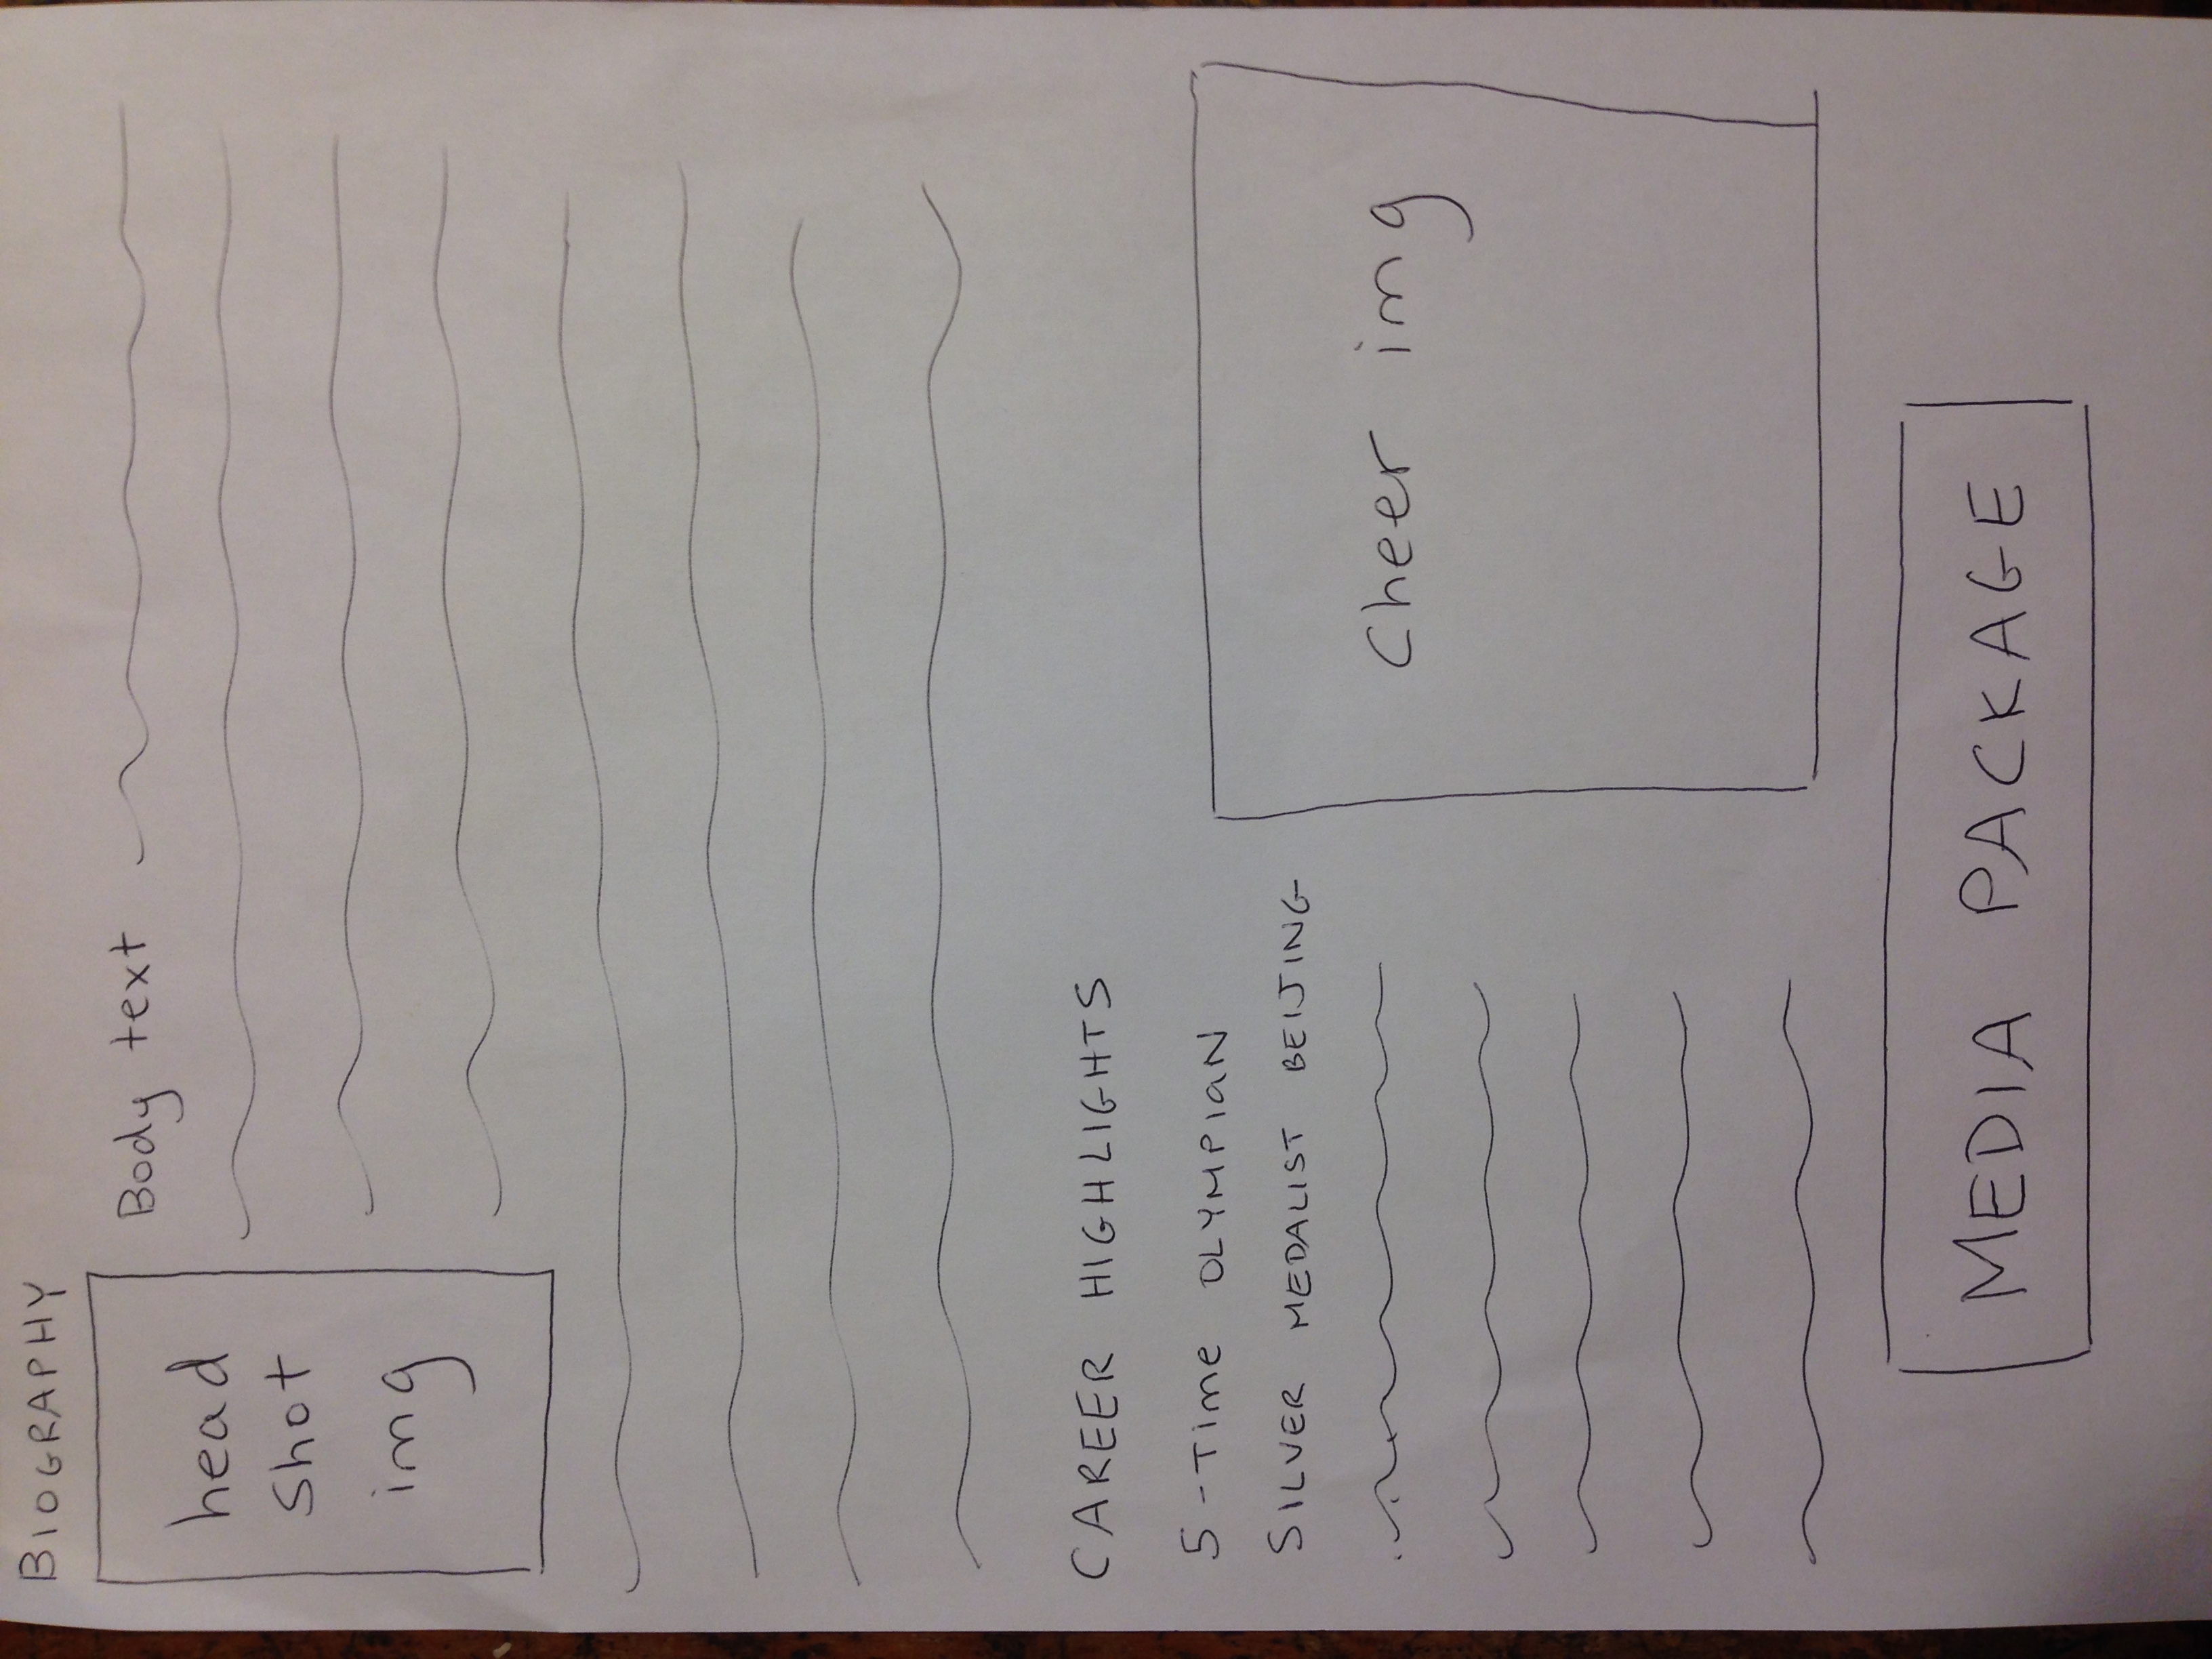 BIOGRAPHY
head
shot
img
Body text
CAREER HIGHLIGHTS
5-Time OLYMPIaN
SILVER MEDALIST BEIJING
Cheer img
MEDIA PACKAGE